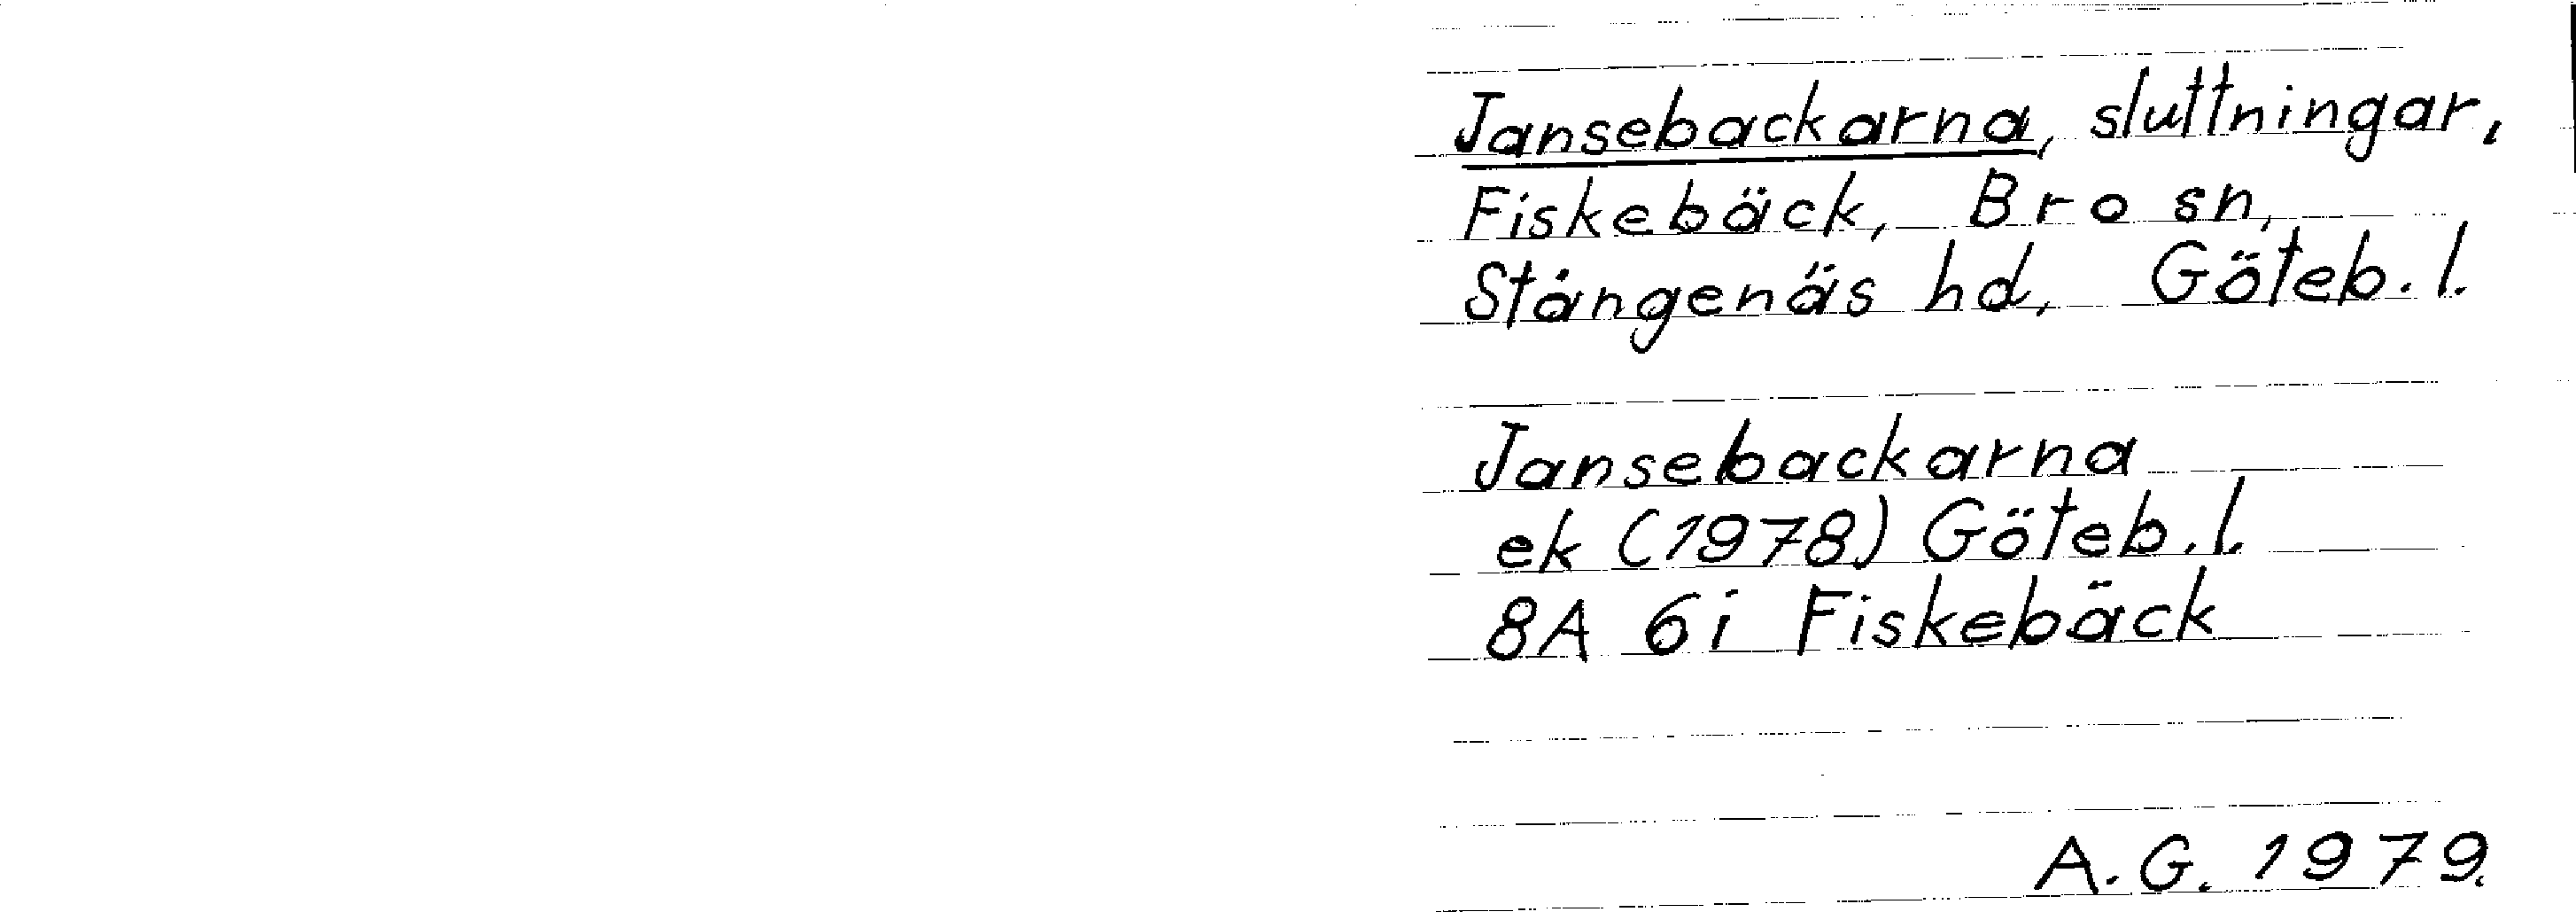 Jansebackarna, sluttningar,
Fiskebäck, Bro sn,
Stångenäs hd, Göteb. l.
Jansebackarna
ek (1978) Göteb. l.
8A 6i Fiskebäck
A. G. 1979.